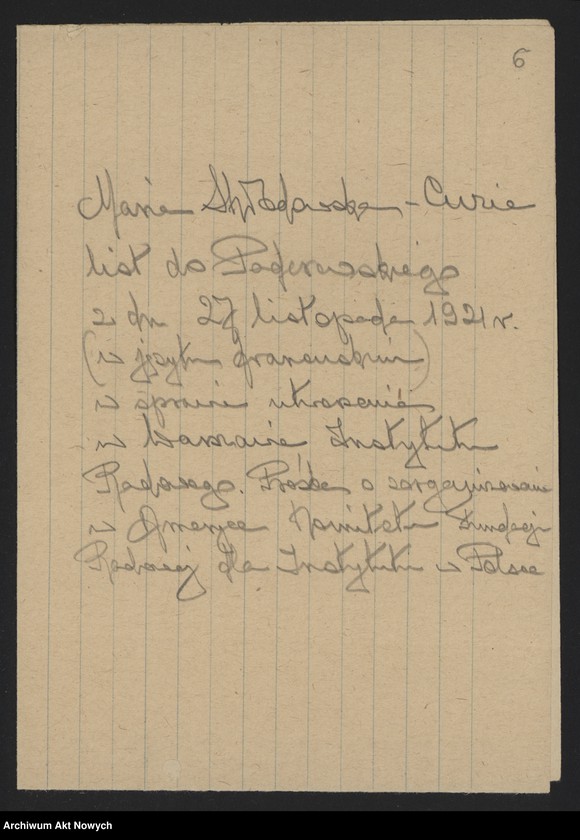 6
Maria Skłodowska-Curie
list do Paderewskiego
z dn 27 listopada 1921 r.
(w języku francuskim)
w sprawie utworzenia
w Warszawie Instytutu
Radowego. Prośba o zorganizowanie
w Ameryce Komitetu Fundacji
Radowej dla Instytutu w Polsce
Archiwum Akt Nowych